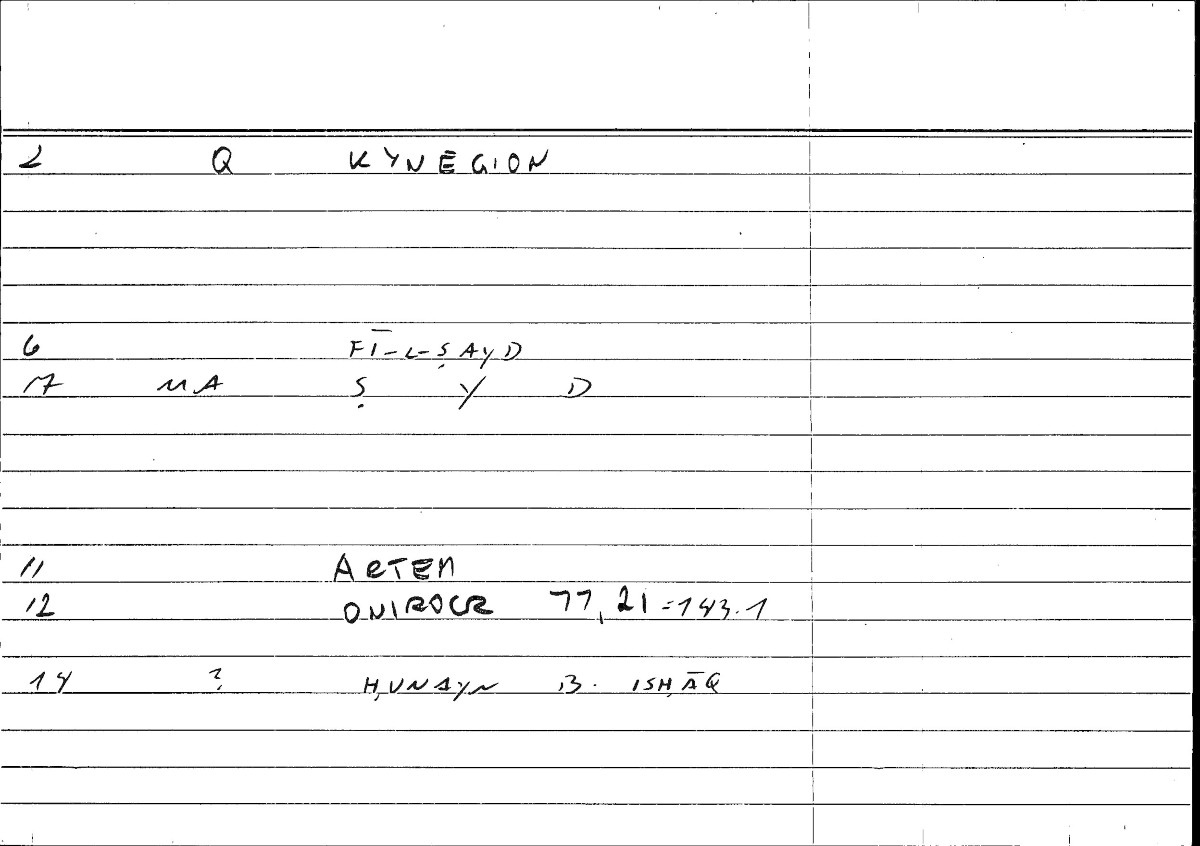 2 Q KYNEGION
6 FĪ-L-ṢAYD
17 MA Ṣ Y D
11 ARTEM
12 ONIROCR 77,21=143.1
14 ? ḤUNAYN B. ISḤĀQ